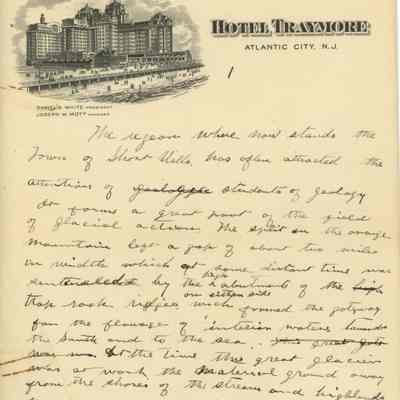 HOTEL TRAYMORE
ATLANTIC CITY, N.J.
DANIEL S. WHITE PRESIDENT
JOSEPH W. MOTT MANAGER
1
The region where now stands the
Town of Short Hills, has often attracted the
attentions of geologic students of geology
for forms a great part of the field
of glacial action. The split in the orange
mountain left a gap of about two miles
in width which at some distant time was
by the high abutments of the high
on either side
trap rock ridges wich formed the gateway
for the flowage of interior waters towards
the South and to the sea. this great gate
was At the time the great Glacier
was at work the material ground away
from the shores of the stream and highlands